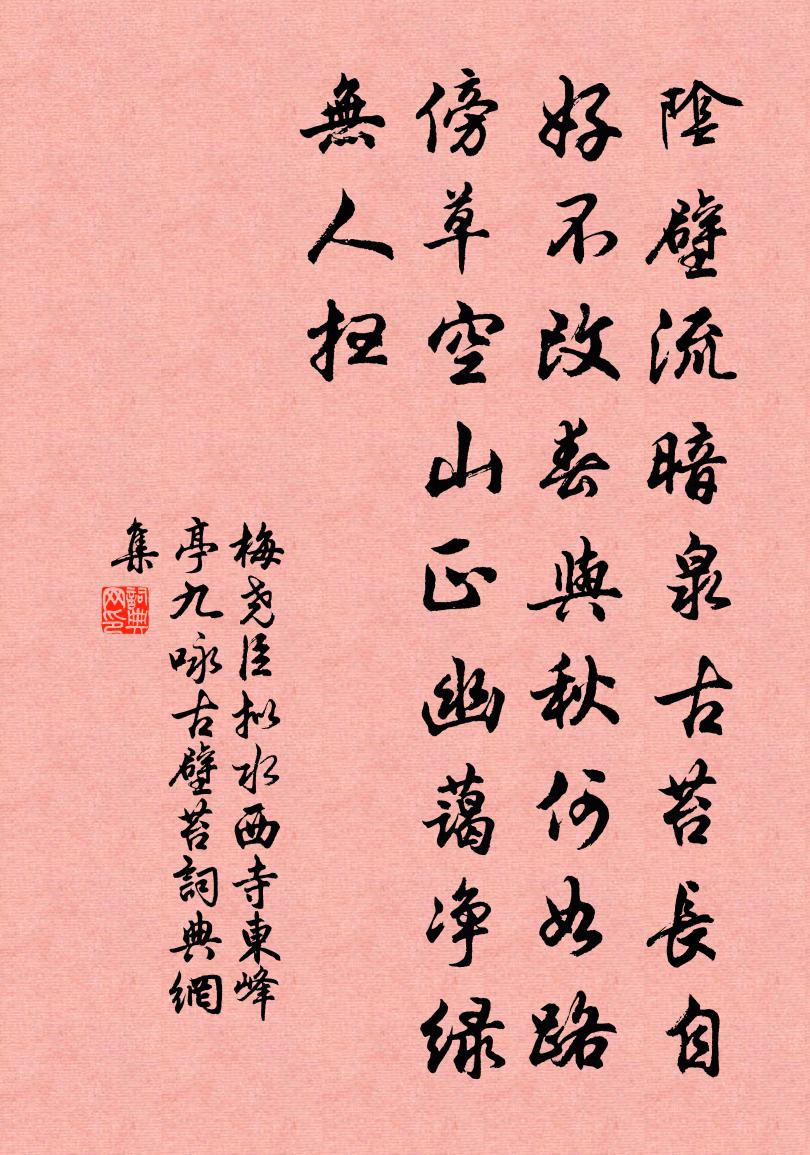 陰壁流暗泉古苔長自
好不改春與秋何如路
傍草空山正幽藹净緑
無人扫
梅尧臣拟水西寺東峰
亭九咏古壁苔詞典網
集
詞典
网印